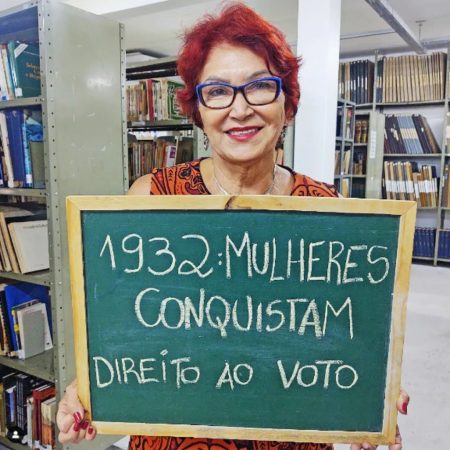 1932: MULHERES
CONQUISTAM
DIREITO AO VOTO